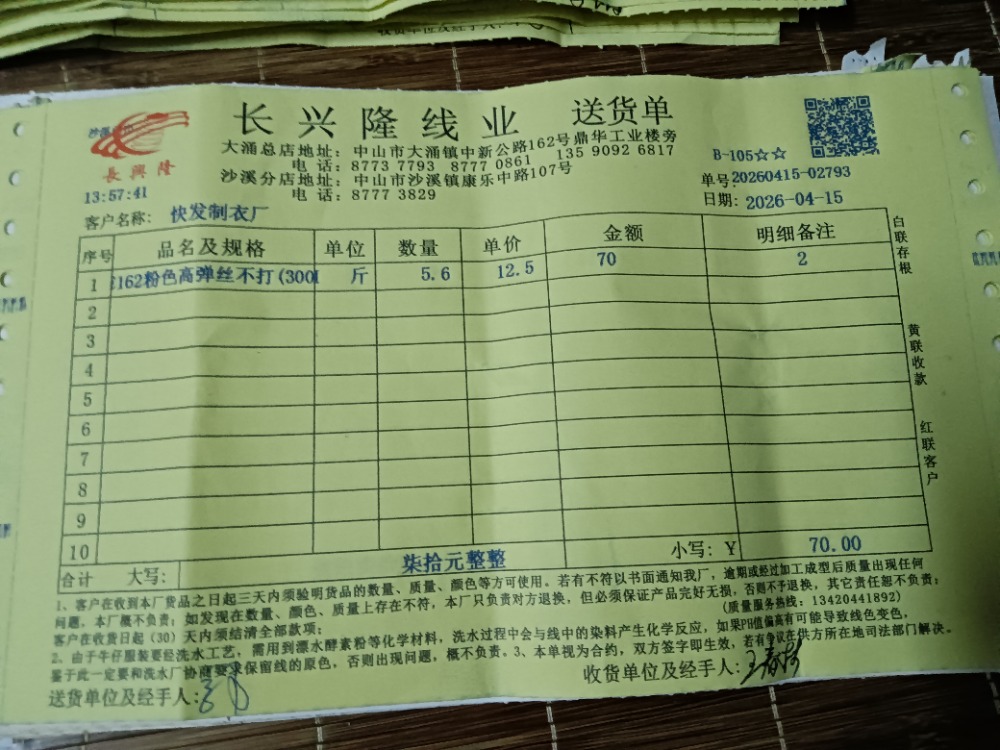 收货单位及经手人:
长兴隆线业 送货单
沙溪
長興隆
大涌总店地址: 中山市大涌镇中新公路162号鼎华工业楼旁
电话: 8773 7793 8777 0861 135 9092 6817
沙溪分店地址: 中山市沙溪镇康乐中路107号
电话: 8777 3829
B-105☆☆
单号:20260415-02793
日期: 2026-04-15
13:57:41
客户名称: 快发制衣厂
序号 品名及规格 单位 数量 单价 金额 明细备注
1 162粉色高弹丝不打(300 斤 5.6 12.5 70 2
2
3
4
5
6
7
8
9
10
合计 大写: 柒拾元整整 小写: ¥ 70.00
白联存根
黄联收款
红联客户
1、客户在收到本厂货品之日起三天内须验明货品的数量、质量、颜色等方可使用。若有不符以书面通知我厂, 逾期或经过加工成型后质量出现任何
问题。本厂概不负责; 如发现在数量、颜色、质量上存在不符, 本厂只负责对方退换, 但必须保证产品完好无损, 否则不予退换, 其它责任恕不负责;
客户在收货日起 (30) 天内须结清全部款项; (质量服务热线: 13420441892)
2、由于牛仔服装要经洗水工艺, 需用到漂水酵素粉等化学材料, 洗水过程中会与线中的染料产生化学反应, 如果PH值偏高有可能导致线色变色,
鉴于此一定要和洗水厂协商要求保留线的原色, 否则出现问题, 概不负责。3、本单视为合约, 双方签字即生效, 若有争议在供方所在地司法部门解决。
送货单位及经手人:
收货单位及经手人: 王春梅